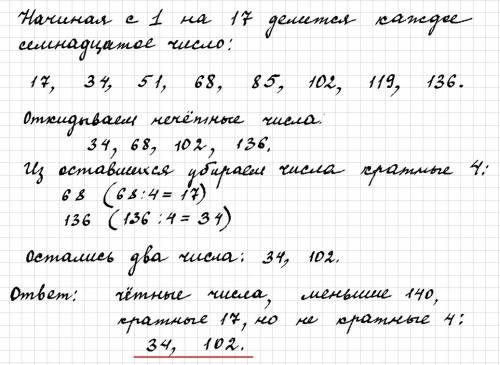 Начиная с 1 на 17 делится каждое
семнадцатое число:
17, 34, 51, 68, 85, 102, 119, 136.
Откидываем нечётные числа:
34, 68, 102, 136.
Из оставшихся убираем числа кратные 4:
68 (68:4=17)
136 (136:4=34)
Остались два числа: 34, 102.
Ответ: чётные числа, меньшие 140,
кратные 17, но не кратные 4:
34, 102.